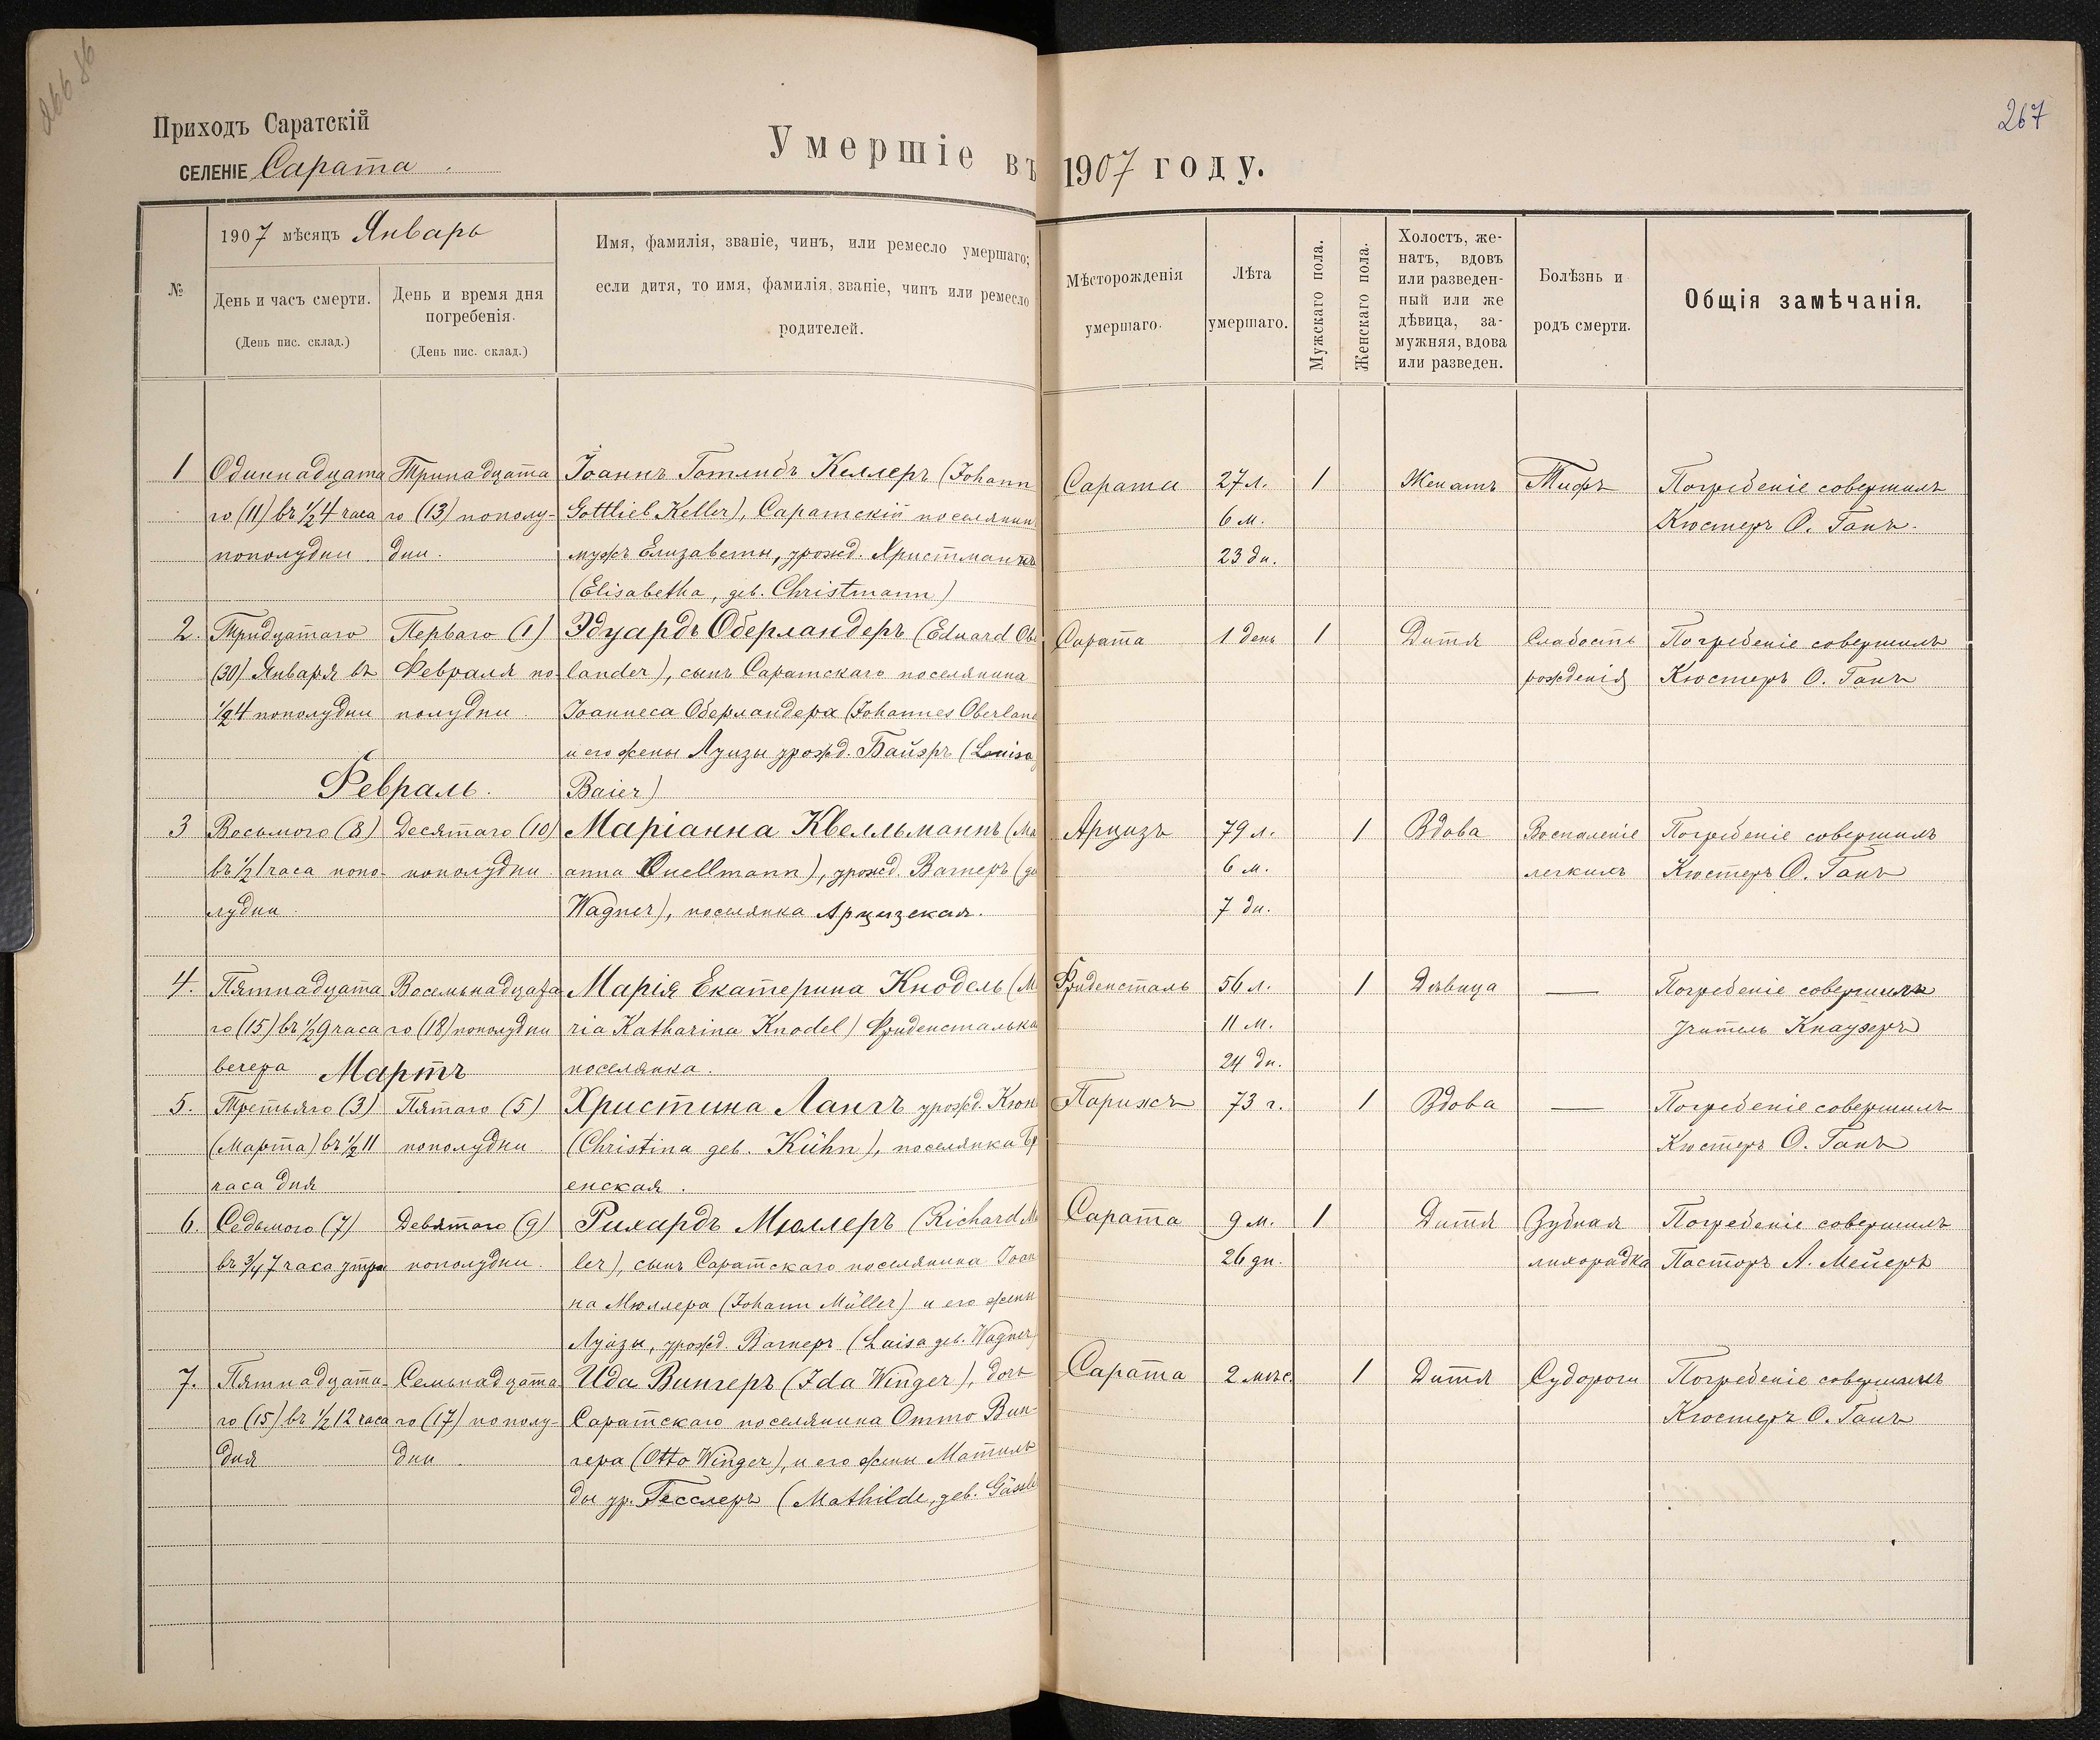 266 86
267
Приходъ Саратскій
СЕЛЕНІЕ Сарата.
Умершіе въ 1907 году.
№
1907 мѣсяцъ Январь
День и часъ смерти.
(День пис. склад.)
День и время дня
погребенія.
(День пис. склад.)
Имя, фамилія, званіе, чинъ, или ремесло умершаго;
если дитя, то имя, фамилія, званіе, чинъ или ремесло
родителей.
Мѣсторожденія
умершаго.
Лѣта
умершаго.
Мужскаго пола.
Женскаго пола.
Холостъ, же-
натъ, вдовъ
или разведен-
ный или же
дѣвица, за-
мужняя, вдова
или разведен.
Болѣзнь и
родъ смерти.
Общія замѣчанія.
1 Одиннадцата Тринадцата Іоаннъ Готлибъ Келлеръ (Johann Сарата 27 л. 1 Женатъ Тифъ Погребеніе совершилъ
го (11) въ ½4 часа го (13) пополу- Gottlieb Keller), Саратскій поселянин 6 м. Кюстеръ О. Ганъ.
пополудни. дни. мужъ Елизаветы, урожд. Христманнъ 23 дн.
(Elisabetha, geb. Christmann)
2. Тридцатаго Перваго (1) Эдуардъ Оберландеръ (Eduard Obe Сарата 1 день 1 Дитя Слабость Погребеніе совершилъ
(30) Января въ Февраля по- lander), сынъ Саратскаго поселянина рожденія Кюстеръ О. Ганъ
½4 пополудни полудни. Іоаннеса Оберландера (Johannes Oberland
и его жены Луизы урожд. Байэръ (Louisa
Февраль. Baier)
3 Восьмого (8) Десятаго (10) Маріанна Квелльманнъ (Ma Арцизъ 79 л. 1 Вдова Воспаленіе Погребеніе совершилъ
въ ½1 часа попо- пополудни. anna Quellmann), урожд. Вагнеръ (ge 6 м. легкихъ Кюстеръ О. Ганъ
лудни. Wagner), поселянка Арцизская. 7 дн.
4. Пятнадцата Восемьнадцата Марія Екатерина Кнодель (M Фриденсталь 56 л. 1 Дѣвица — Погребеніе совершилъ
го (15) въ ½9 часа го (18) пополудни ria Katharina Knodel) Фриденсталька 11 м. Учитель Кнауэръ
вечера Мартъ поселянка. 24 дн.
5. Третьяго (3) Пятаго (5) Христина Лангъ урожд. Кюн Парижъ 73 г. 1 Вдова — Погребеніе совершилъ
(Марта) въ ½11 пополудни. (Christina geb. Kühn), поселянка Бр Кюстеръ О. Ганъ
часа дня енская.
6. Седьмого (7) Девятаго (9) Рихардъ Мюллеръ (Richard M Сарата 9 м. 1 Дитя Зубная Погребеніе совершилъ
въ ¾7 часа утра пополудни. ler), сынъ Саратскаго поселянина Іоан 26 дн. лихорадка Пасторъ А. Мейеръ
на Мюллера (Johann Müller) и его жены
Луизы, урожд. Вагнеръ (Luisa geb. Wagner)
7. Пятнадцата- Семьнадцата Ида Вингеръ (Ida Winger), дочь Сарата 2 мѣс. 1 Дитя Судороги Погребеніе совершилъ
го (15) въ ½12 часа го (17) пополу- Саратскаго поселянина Отто Вин- Кюстеръ О. Ганъ
дня дни. гера (Otto Winger), и его жены Матиль
ды ур. Гесслеръ (Mathilde, geb. Gässle